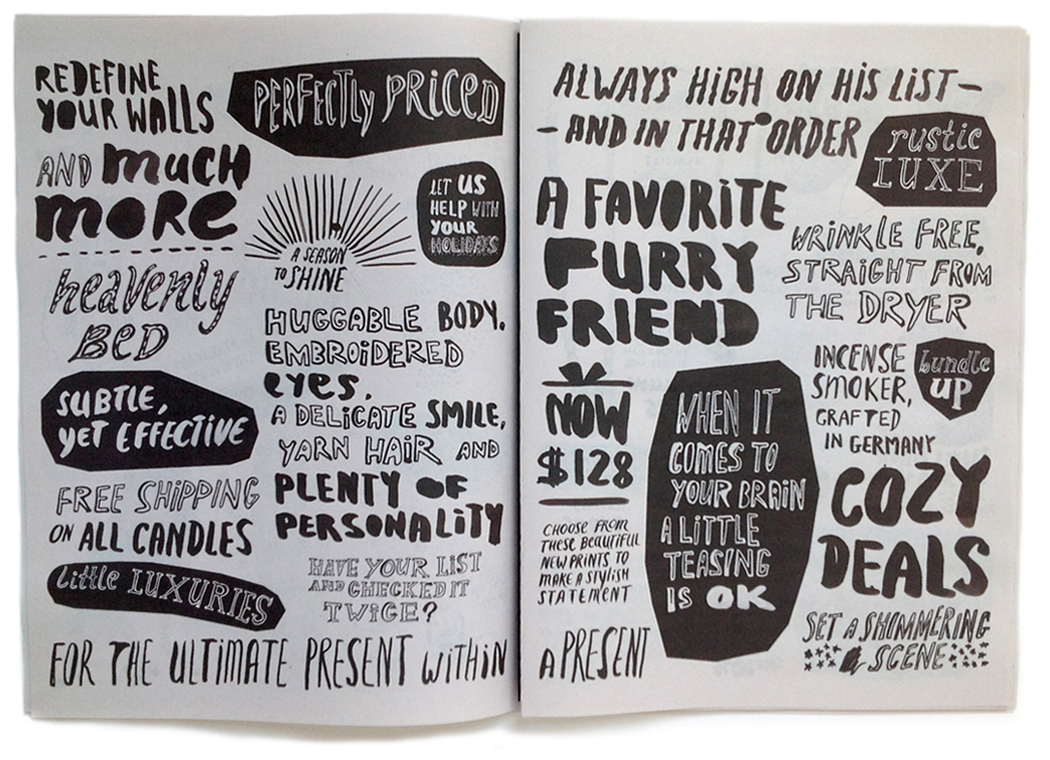 REDEFINE
YOUR WALLS
PERFECTLY PRICED
AND much
more
LET US
HELP WITH
YOUR
HOLIDAYS
A SEASON
TO SHINE
heavenly
BED
HUGGABLE BODY,
EMBROIDERED
eyes,
A DELICATE SMILE,
YARN HAIR AND
PLENTY OF
PERSONALITY
SUBTLE,
yet EFFECTIVE
FREE SHIPPING
ON ALL CANDLES
little LUXURIES
HAVE YOUR LIST
AND CHECKED IT
TWICE?
FOR THE ULTIMATE PRESENT WITHIN
A PRESENT
ALWAYS HIGH ON HIS LIST—
—AND IN THAT ORDER
rustic
LUXE
A FAVORITE
FURRY
FRIEND
WRINKLE FREE,
STRAIGHT FROM
THE DRYER
INCENSE
SMOKER,
CRAFTED
IN GERMANY
bundle
UP
NOW
$128
CHOOSE FROM
THESE BEAUTIFUL
NEW PRINTS TO
MAKE A STYLISH
STATEMENT
WHEN IT
COMES TO
YOUR BRAIN
A LITTLE
TEASING
IS OK
COZY
DEALS
SET A SHIMMERING
SCENE